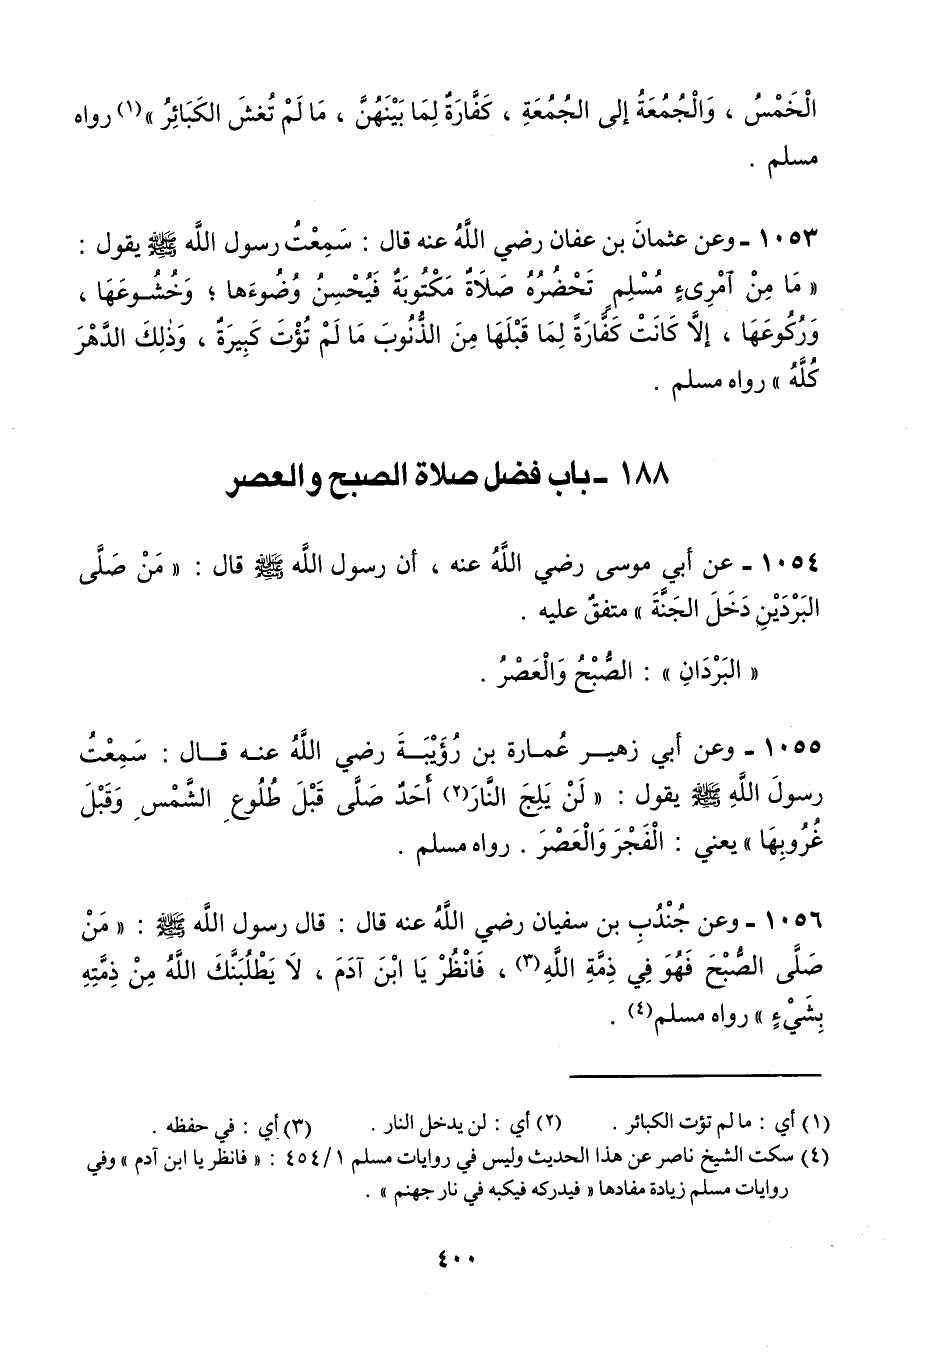 الْخَمْسُ ، وَالْجُمُعَةُ إلى الجُمُعَةِ ، كَفَّارَةٌ لِمَا بَيْنَهُنَّ ، مَا لَمْ تُغشَ الكَبَائِرُ »(١) رواه
مسلم .
١٠٥٣ ـ وعن عثمانَ بن عفان رضي اللَّهُ عنه قال : سَمِعْتُ رسول اللَّه ﷺ يقول :
« مَا مِنْ آمْرِىءٍ مُسْلِمٍ تَحْضُرُهُ صَلَاةٌ مَكْتُوبَةٌ فَيُحْسِنُ وُضُوءَها ؛ وَخُشُوعَهَا ،
وَرُكُوعَهَا ، إلَّا كَانَتْ كَفَّارَةً لِمَا قَبْلَهَا مِنَ الذُّنُوبَ مَا لَمْ تُؤْتَ كَبِيرَةٌ ، وَذٰلِكَ الدَّهْرَ
كُلَّهُ » رواه مسلم .
١٨٨ ـ باب فضل صلاة الصبح والعصر
١٠٥٤ ـ عن أبي موسى رضي اللَّهُ عنه ، أن رسول اللَّه ﷺ قال : « مَنْ صَلَّى
البَرْدَيْنِ دَخَلَ الجَنَّةَ » متفقٌ عليه .
« البَرْدَانِ » : الصُّبْحُ وَالْعَصْرُ .
١٠٥٥ ـ وعن أبي زهير عُمارة بن رُؤَيْبَةَ رضي اللَّهُ عنه قال : سَمِعْتُ
رسولَ اللَّهِ ﷺ يقول : « لَنْ يَلِجَ النَّارَ(٢) أَحَدٌ صَلَّى قَبْلَ طُلُوعِ الشَّمْسِ وَقَبْلَ
غُرُوبِهَا » يعني : الْفَجْرَ وَالْعَصْرَ . رواه مسلم .
١٠٥٦ ـ وعن جُنْدُبِ بن سفيان رضي اللَّهُ عنه قال : قال رسول اللَّه ﷺ : « مَنْ
صَلَّى الصُّبْحَ فَهُوَ فِي ذِمَّةِ اللَّهِ(٣) ، فَانْظُرْ يَا ابْنَ آدَمَ ، لَا يَطْلُبَنَّكَ اللَّهُ مِنْ ذِمَّتِهِ
بِشَيْءٍ » رواه مسلم(٤) .
(١) أي : ما لم تؤت الكبائر . (٢) أي : لن يدخل النار . (٣) أي : في حفظه .
(٤) سكت الشيخ ناصر عن هذا الحديث وليس في روايات مسلم ١/ ٤٥٤ : « فانظر يا ابن آدم » وفي
روايات مسلم زيادة مفادها « فيدركه فيكبه في نار جهنم » .
٤٠٠